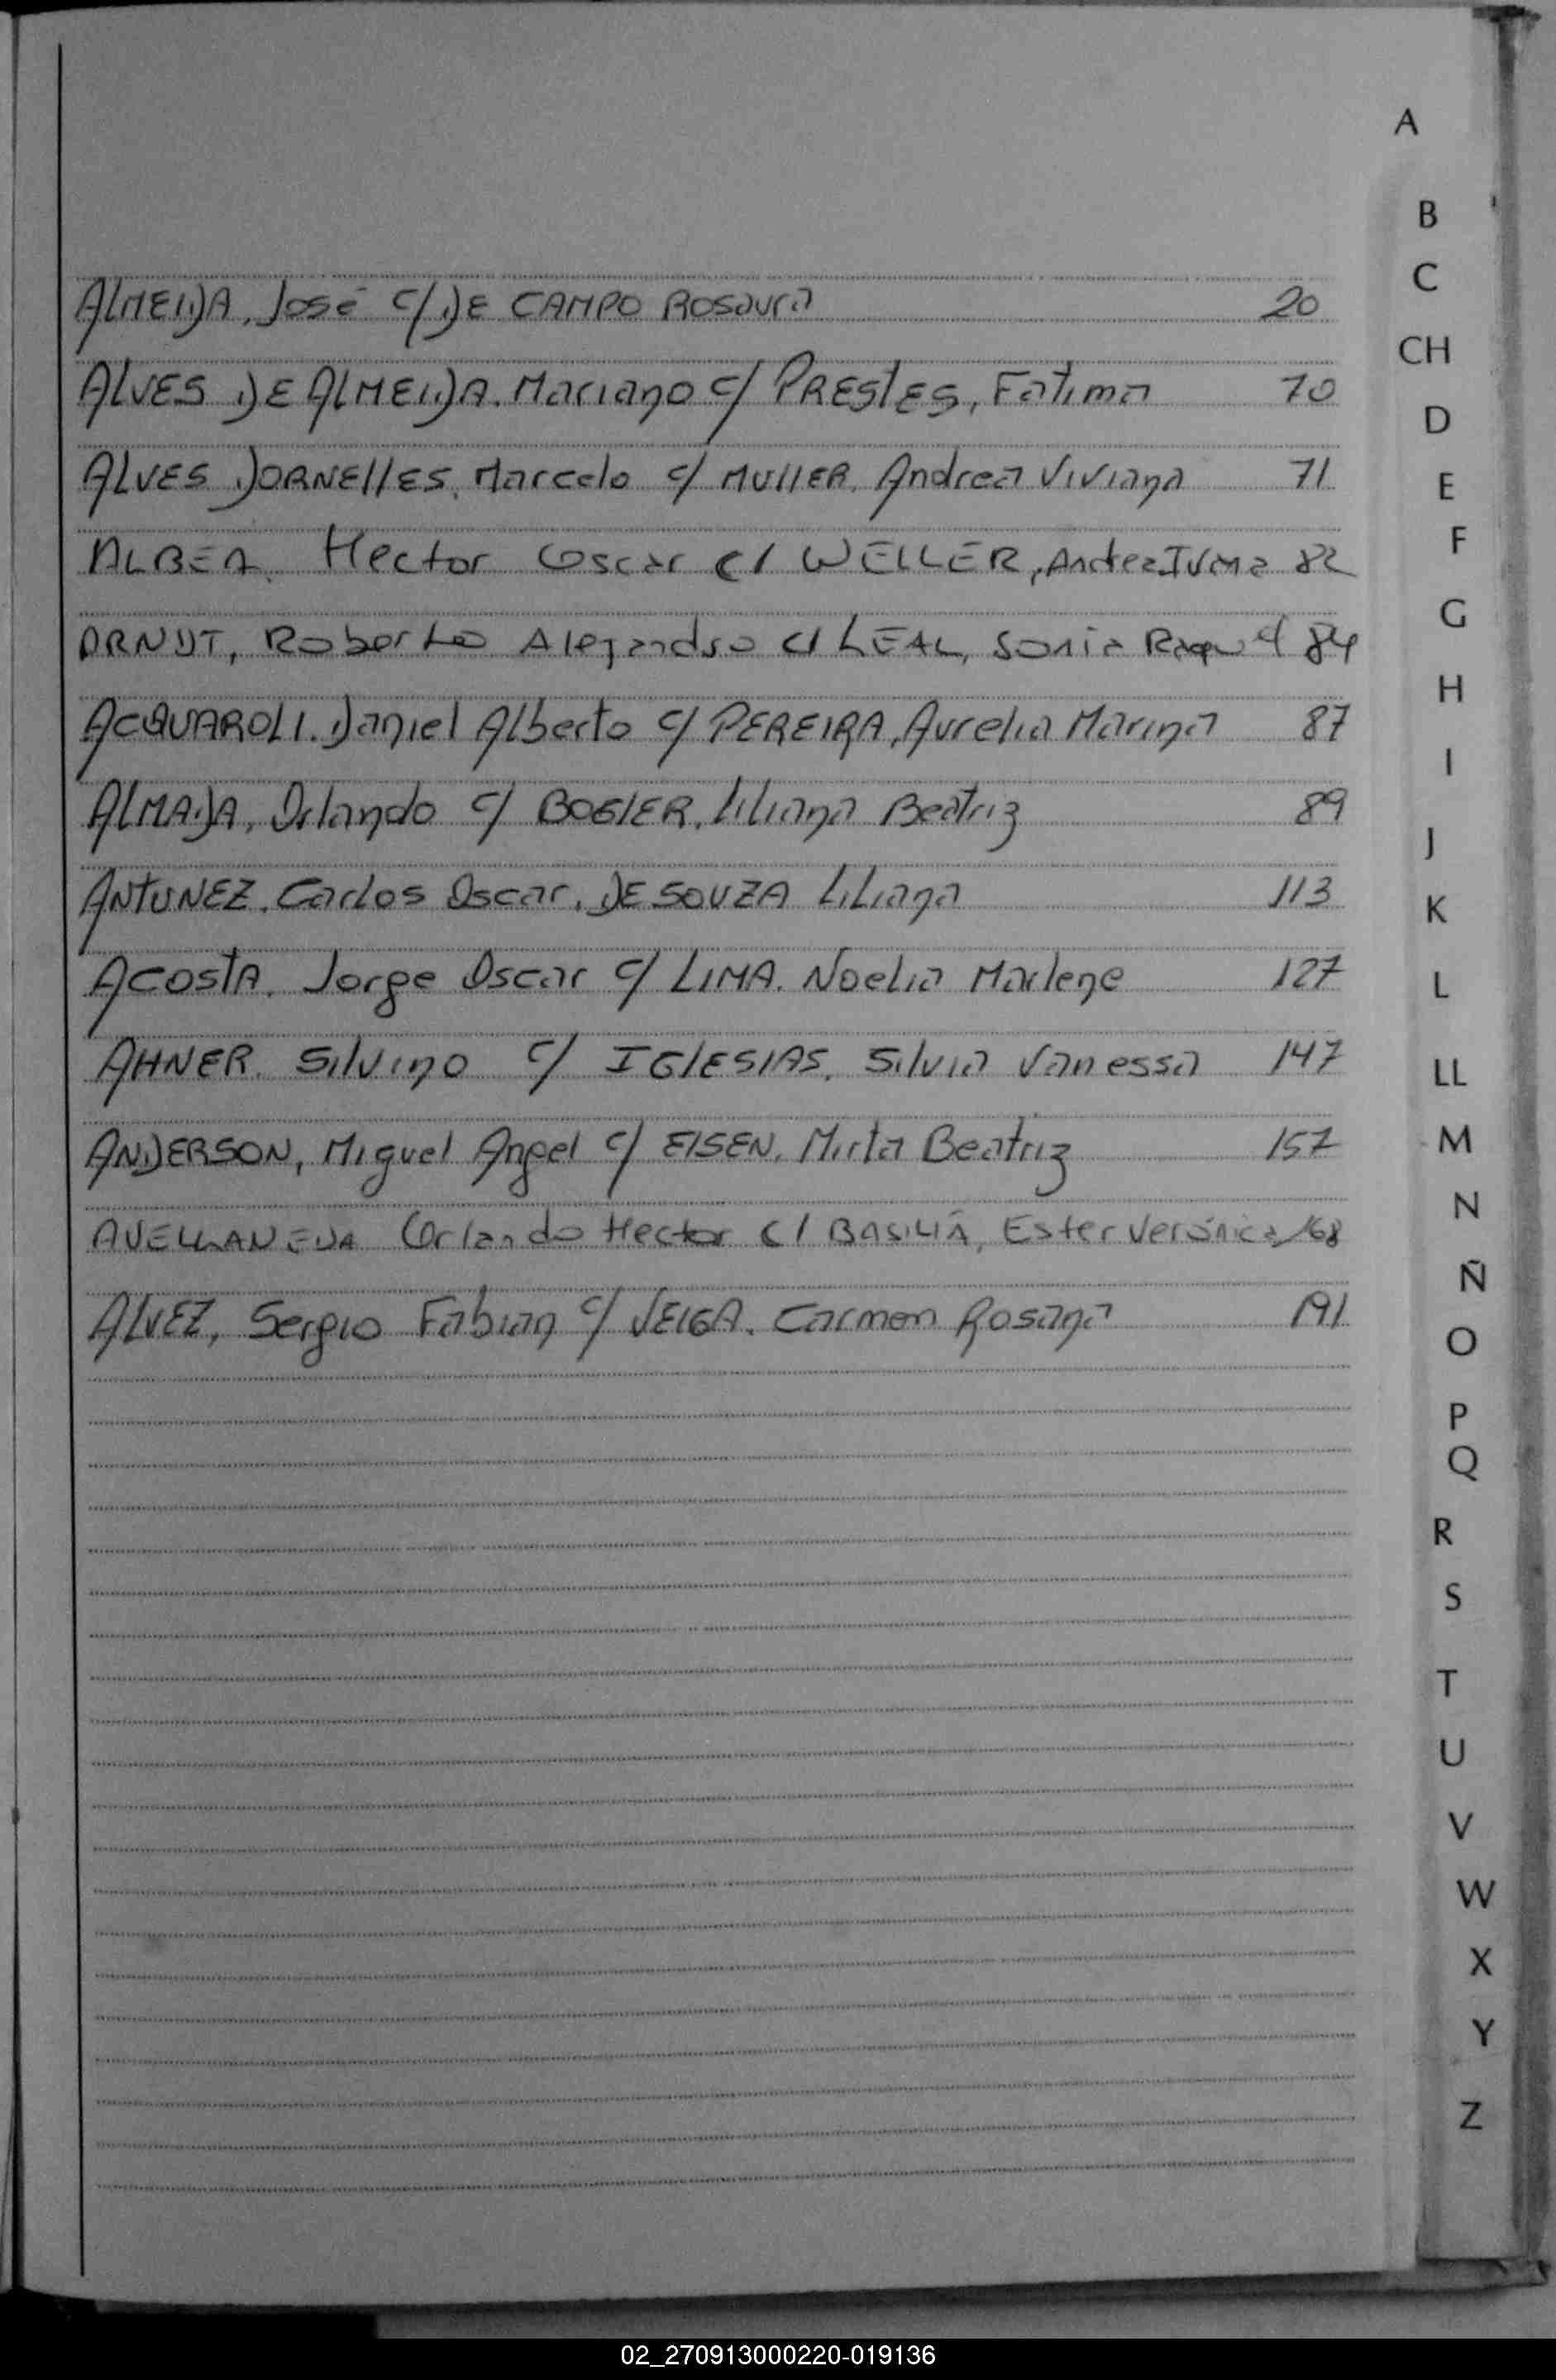 ALMEIDA, José c/ DE CAMPO Rosaura 20
ALVES DE ALMEIDA, Mariano c/ PRESTES, Fatima 70
ALVES DORNELLES, Marcelo c/ MULLER, Andrea Viviana 71
ALBEA, Hector Oscar c/ WELLER, Andrea Irma 82
ARNDT, Roberto Alejandro c/ LEAL, Sonia Raquel 84
ACQUAROLI, Daniel Alberto c/ PEREIRA, Aurelia Marina 87
ALMADA, Orlando c/ BOGLER, Liliana Beatriz 89
ANTUNEZ, Carlos Oscar, DE SOUZA Liliana 113
ACOSTA, Jorge Oscar c/ LIMA, Noelia Marlene 127
AHNER, Silvino c/ IGLESIAS, Silvia Vanessa 147
ANDERSON, Miguel Angel c/ EISEN, Mirta Beatriz 157
AVELLANEDA Orlando Hector c/ BASILIA, Ester Verónica 168
ALVEZ, Sergio Fabian c/ VEIGA, Carmen Rosana 191
A
B
C
CH
D
E
F
G
H
I
J
K
L
LL
M
N
Ñ
O
P
Q
R
S
T
U
V
W
X
Y
Z
02_270913000220-019136